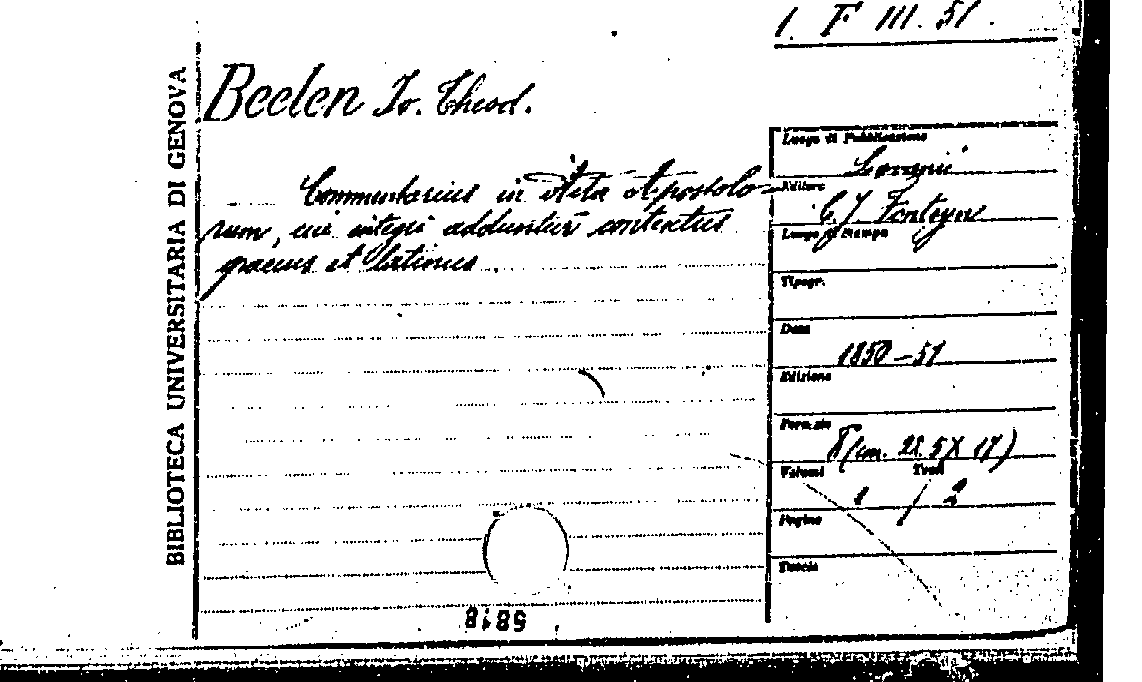 1. F III. 51.
BIBLIOTECA UNIVERSITARIA DI GENOVA
Beelen Io. Theod.
Commentarius in Acta Apostolo=
rum, cui integri adduntur contextus
graecus et latinus
Luogo di Pubblicazione
Lovanii
Editore
C. J. Fonteyn
Luogo di Stampa
Tipogr.
Data
1850-51
Edizione
Formato
8° (cm. 22.5 X 17)
Volumi Tomi
1 / 2
Pagine
5818